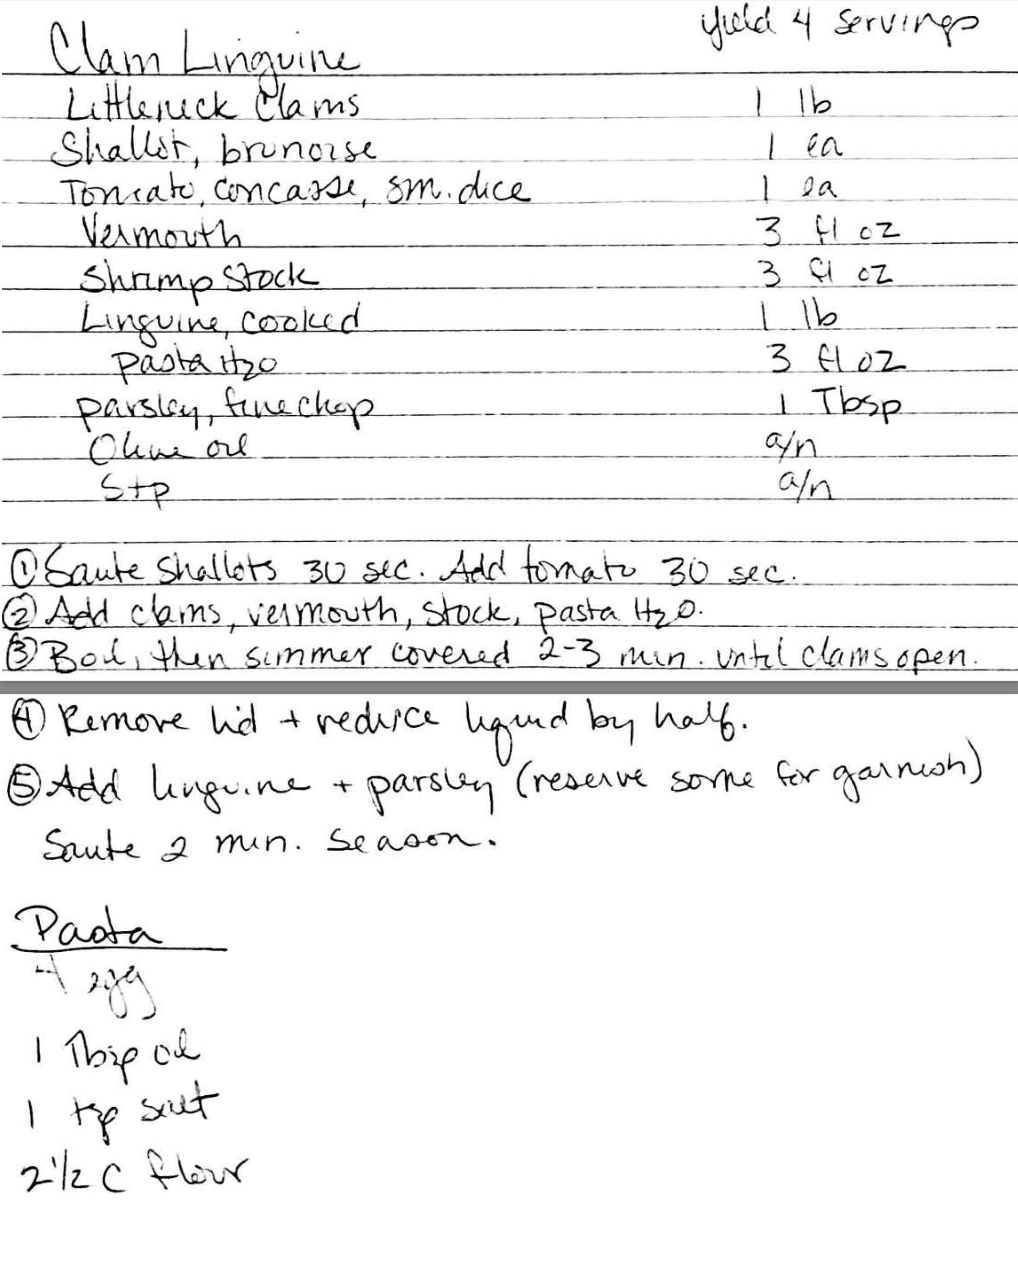 Clam Linguine yield 4 servings
Littleneck Clams 1 lb
Shallot, brunoise 1 ea
Tomato, concasse, sm. dice 1 ea
Vermouth 3 fl oz
Shrimp Stock 3 fl oz
Linguine, cooked 1 lb
pasta H2O 3 fl oz
parsley, fine chop 1 Tbsp
Olive oil a/n
S+p a/n
① Saute shallots 30 sec. Add tomato 30 sec.
② Add clams, vermouth, stock, pasta H2O.
③ Boil, then simmer covered 2-3 min. until clams open.
④ Remove lid + reduce liquid by half.
⑤ Add linguine + parsley (reserve some for garnish)
Saute 2 min. Season.
Pasta
4 egg
1 Tbsp oil
1 tsp salt
2 1/2 C flour